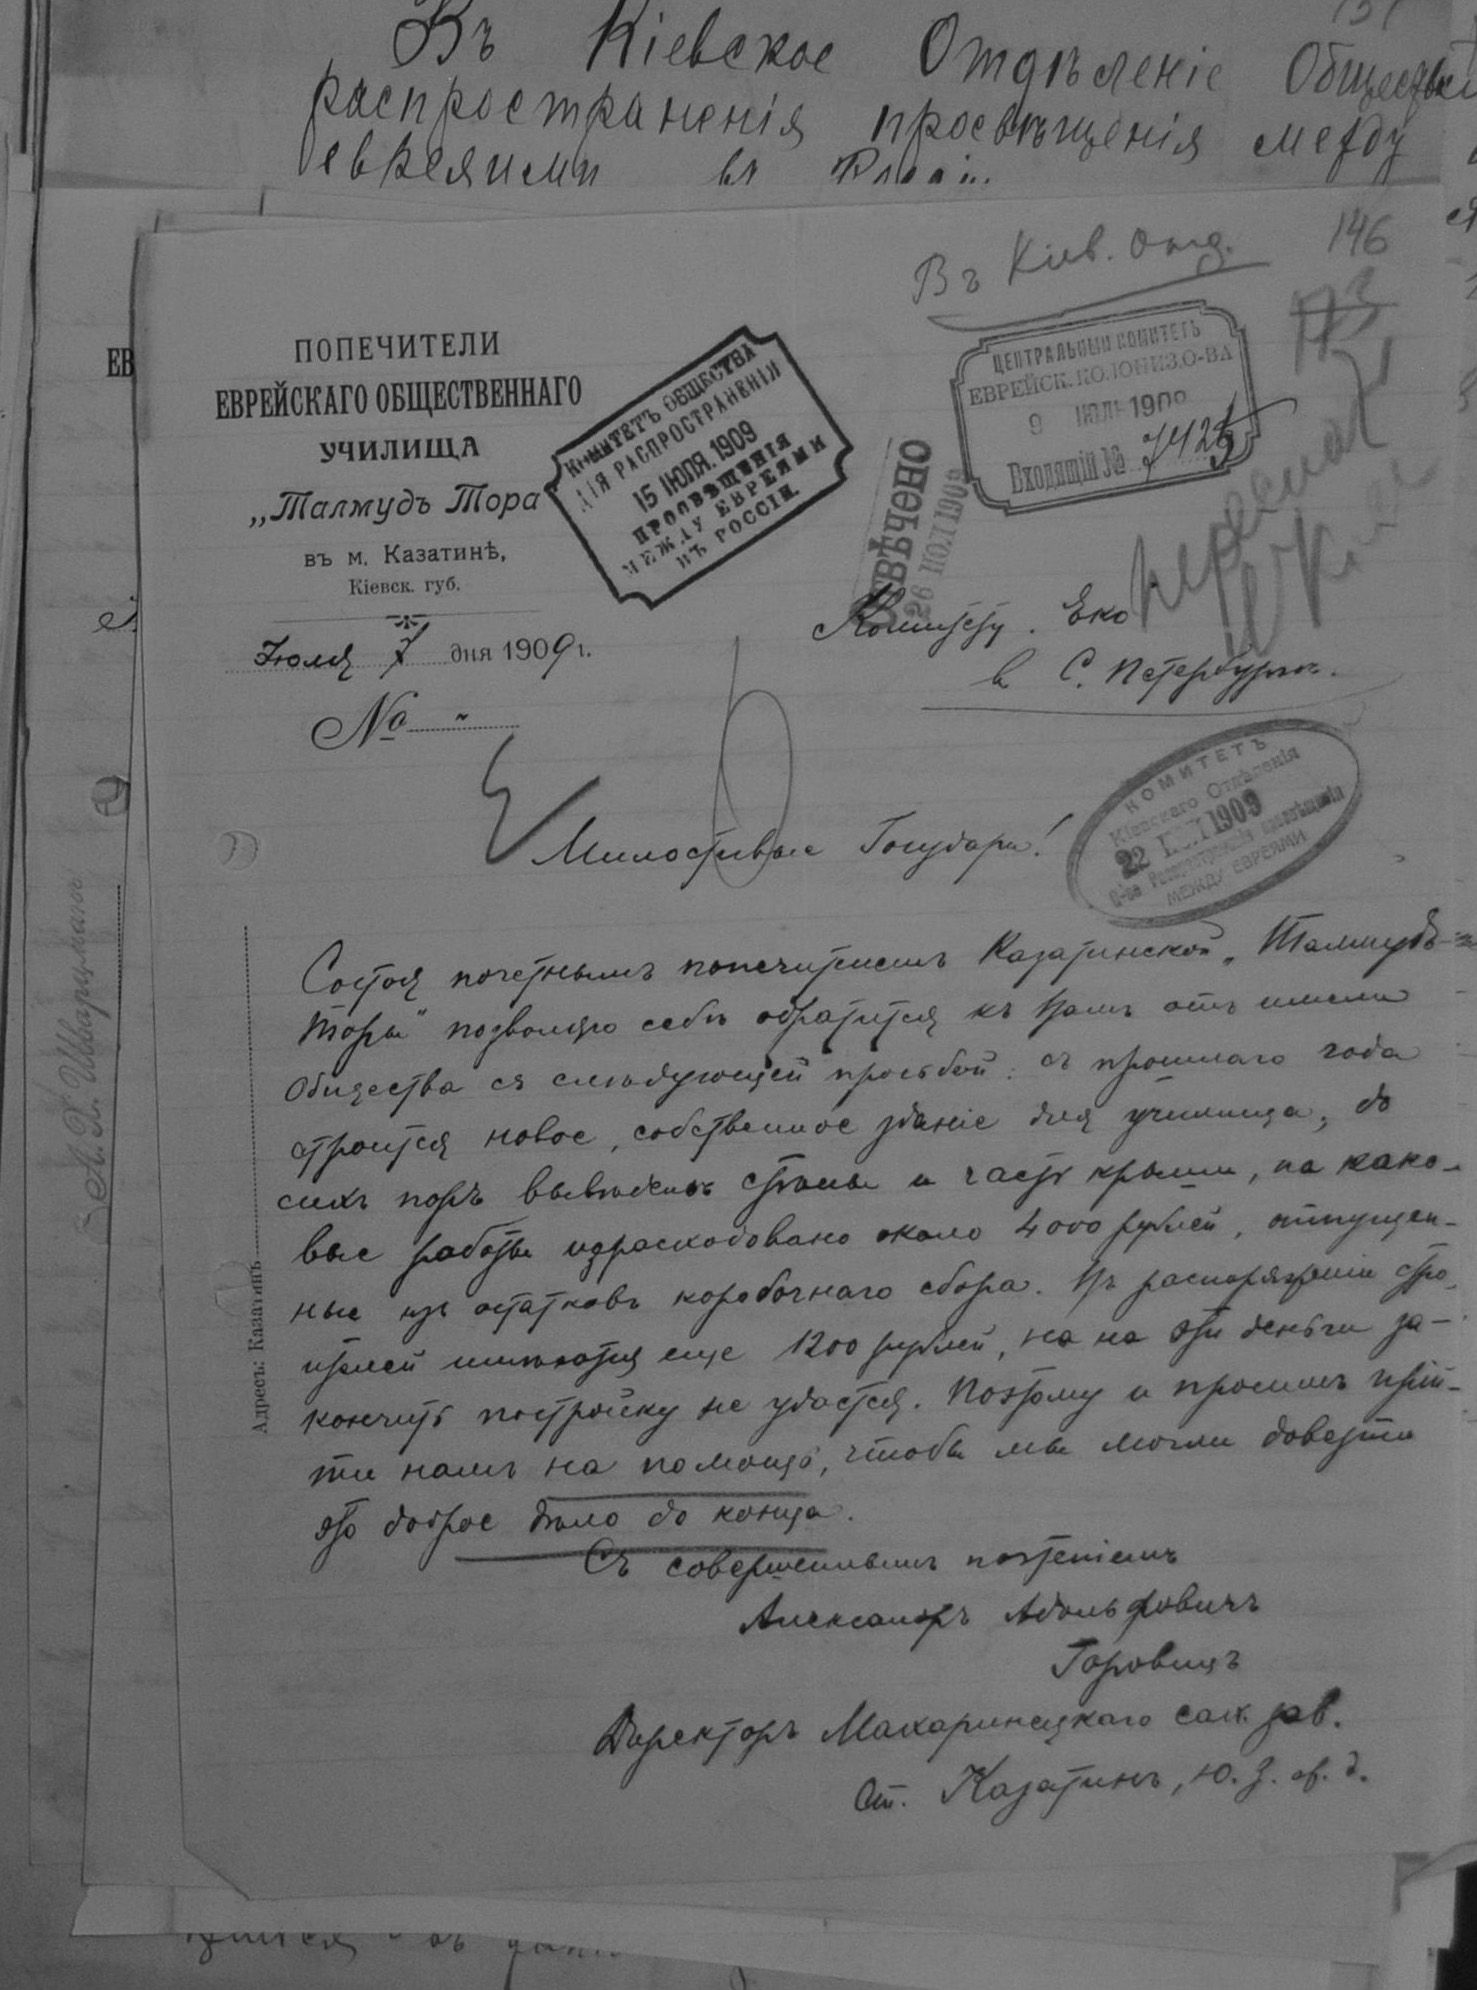 Въ Кіевское Отдѣленіе Общества
распространенія просвѣщенія между
евреями въ Россіи.
146
Въ Кіев. Отд.
173
ЕВ
ПОПЕЧИТЕЛИ
ЕВРЕЙСКАГО ОБЩЕСТВЕННАГО
УЧИЛИЩА
„Талмудъ Тора
въ м. Казатинѣ,
Кіевск. губ.
Іюля 7 дня 1909 г.
№ "
КОМИТЕТЪ ОБЩЕСТВА
ДЛЯ РАСПРОСТРАНЕНІЯ
15 ІЮЛЯ. 1909
ПРОСВѢЩЕНІЯ
МЕЖДУ ЕВРЕЯМИ
ВЪ РОССІИ.
ЦЕНТРАЛЬНЫЙ КОМИТЕТЪ
ЕВРЕЙСК. КОЛОНИЗ. О-ВА
9 ІЮЛЯ 1909
Входящій № 7425
ОТВѢЧЕНО
26 ІЮЛ 1909
Комитету Еко
в С. Петербургѣ.
КОМИТЕТЪ
Кіевскаго Отдѣленія
22 ІЮЛ 1909
О-ва Распространенія просвѣщенія
МЕЖДУ ЕВРЕЯМИ
Милостивые Государи!
Состоя почетнымъ попечителемъ Казатинской „Талмудъ-
Торы" позволяю себѣ обратится къ Вамъ отъ имени
Общества съ слѣдующей просьбой: съ прошлаго года
строится новое, собственное зданіе для училища, до
сихъ поръ выведены стѣны и часть крыши, на како-
вые работы израсходовано около 4000 рублей, отпущен-
ные изъ остатковъ коробочнаго сбора. Въ распоряженіи стро-
ителей имѣются еще 1200 рублей, но на эти деньги за-
кончить постройку не удастся. Поэтому и просимъ прій-
ти намъ на помощь, чтобы мы могли довезти
это доброе дѣло до конца.
Съ совершеннымъ почтеніемъ
Александръ Адольфовичъ
Горовицъ
Директоръ Махаринецкаго сах. зав.
Ст. Казатинъ, Ю. З. ж. д.
Адресъ: Казатинъ